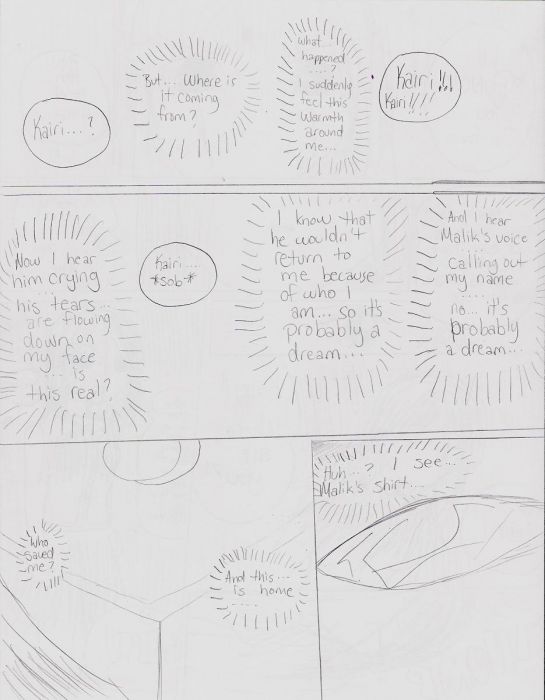 Kairi!!!
Kairi!!!
What...
happened
....?
I suddenly
feel this
warmth
around
me...
But... Where is
it coming
from?
Kairi....?
And I hear
Malik's voice
...
calling out
my name
....
no... it's
probably
a dream...
I know that
he wouldn't
return to
me because
of who I
am... so it's
probably a
dream...
Kairi....
*sob*
Now I hear
him crying
...
his tears...
are flowing
down on
my face
... is
this real?
Huh...? I see...
Malik's shirt...
And this...
is home
....
Who
saved
me?